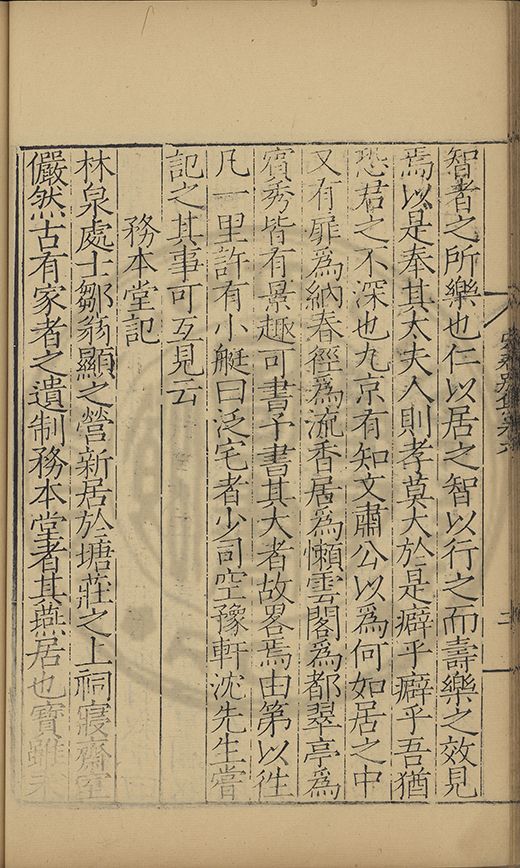 智者之所樂也仁以居之智以行之而壽樂之效見
焉以是奉其大夫人則孝莫大於是癖乎癖乎吾猶
恐君之不深也九京有知文肅公以爲何如居之中
又有扉爲納春徑爲流香居爲懶雲閣爲都翠亭爲
賓秀皆有景趣可書予書其大者故畧焉由第以徃
凡一里許有小艇曰泛宅者少司空豫軒沈先生嘗
記之其事可互見云
務本堂記
林泉處士鄒翁顯之營新居於塘莊之上祠寢齋室
儼然古有家者之遺制務本堂者其燕居也寶雖未